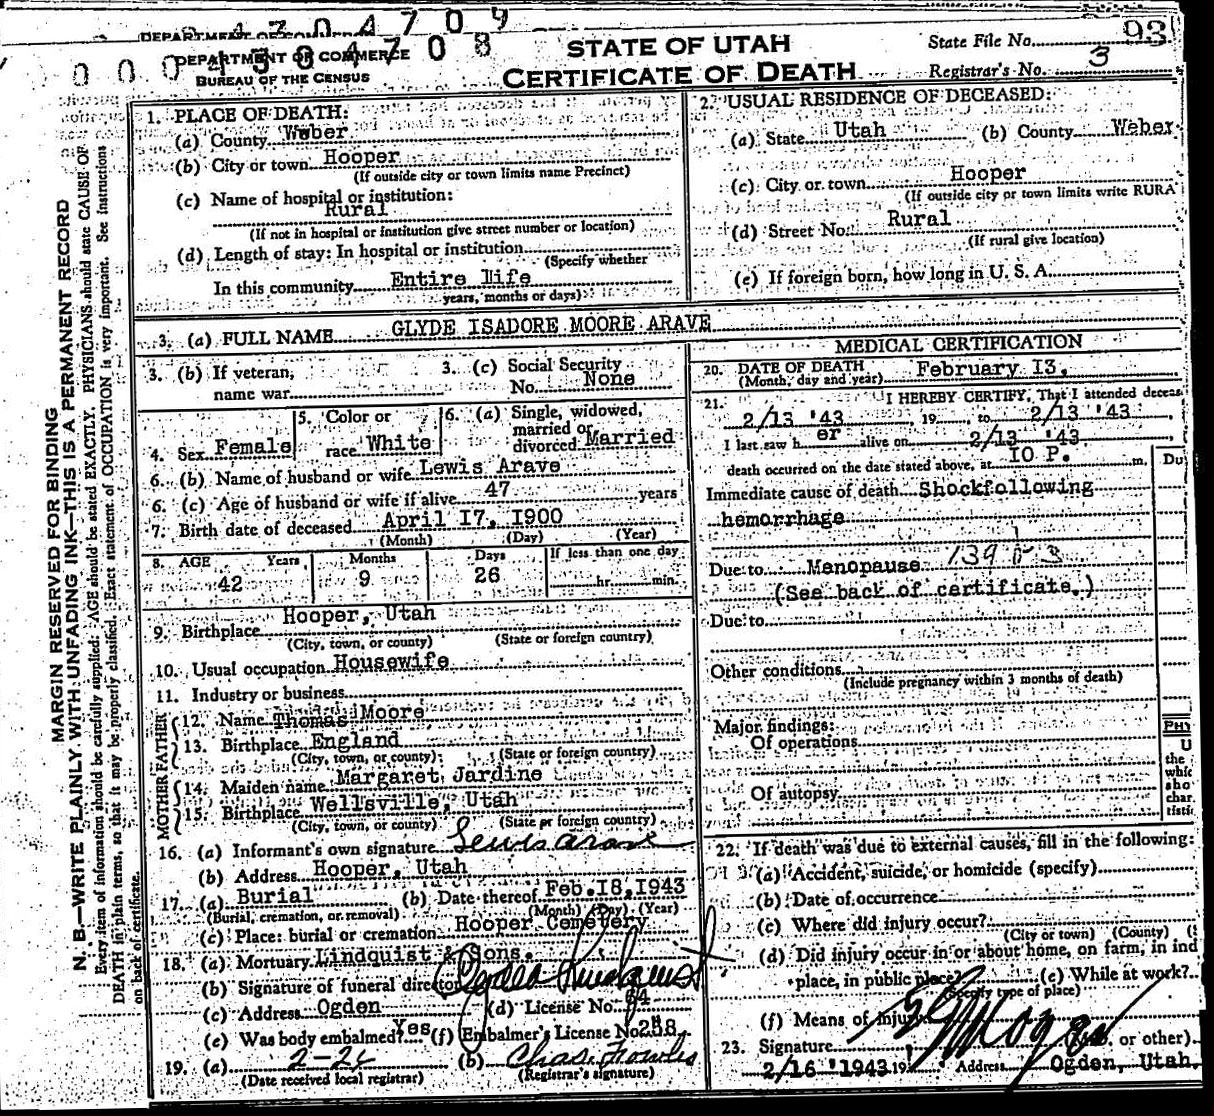 DEPARTMENT OF COMMERCE
BUREAU OF THE CENSUS
STATE OF UTAH
CERTIFICATE OF DEATH
State File No. 93
Registrar's No. 3
MARGIN RESERVED FOR BINDING
N. B—WRITE PLAINLY WITH UNFADING INK—THIS IS A PERMANENT RECORD
Every item of information should be carefully supplied. AGE should be stated EXACTLY. PHYSICIANS should state CAUSE OF
DEATH in plain terms, so that it may be properly classified. Exact statement of OCCUPATION is very important. See instructions
on back of certificate.
1. PLACE OF DEATH:
(a) County Weber
(b) City or town Hooper
(If outside city or town limits name Precinct)
(c) Name of hospital or institution:
Rural
(If not in hospital or institution give street number or location)
(d) Length of stay: In hospital or institution
(Specify whether
In this community Entire life
years, months or days)
2. USUAL RESIDENCE OF DECEASED:
(a) State Utah (b) County Weber
(c) City or town Hooper
(If outside city or town limits write RURA
(d) Street No. Rural
(If rural give location)
(e) If foreign born, how long in U. S. A.
3. (a) FULL NAME GLYDE ISADORE MOORE ARAVE
3. (b) If veteran,
name war
3. (c) Social Security
No. None
4. Sex Female
5. Color or
race White
6. (a) Single, widowed,
married or
divorced Married
6. (b) Name of husband or wife Lewis Arave
6. (c) Age of husband or wife if alive 47 years
7. Birth date of deceased April I7, I900
(Month) (Day) (Year)
8. AGE Years Months Days If less than one day
42 9 26 hr. min.
9. Birthplace Hooper, Utah
(City, town, or county) (State or foreign country)
10. Usual occupation Housewife
11. Industry or business
FATHER
12. Name Thomas Moore
13. Birthplace England
(City, town, or county) (State or foreign country)
MOTHER
14. Maiden name Margaret Jardine
15. Birthplace Wellsville, Utah
(City, town, or county) (State or foreign country)
16. (a) Informant's own signature Lewis Arave
(b) Address Hooper, Utah
17. (a) Burial (b) Date thereof Feb. I8, 1943
(Burial, cremation, or removal) (Month) (Day) (Year)
(c) Place: burial or cremation Hooper Cemetery
18. (a) Mortuary Lindquist & Sons.
(b) Signature of funeral director
(c) Address Ogden (d) License No. 64
(e) Was body embalmed? Yes (f) Embalmer's License No. 288
19. (a) 2-24 (b) Chas. Fowles
(Date received local registrar) (Registrar's signature)
MEDICAL CERTIFICATION
20. DATE OF DEATH
(Month, day and year) February I3.
21. I HEREBY CERTIFY, That I attended deceas
2/13 '43 19 to 2/13 '43
I last saw h er alive on 2/13 '43
death occurred on the date stated above, at IO P. m.
Du
Immediate cause of death Shockfollowing
hemorrhage
Due to Menopause
(See back of certificate.)
Due to
Other conditions
(Include pregnancy within 3 months of death)
Major findings:
Of operations
Of autopsy
PHY
U
the
whic
sho
char
tisti
22. If death was due to external causes, fill in the following:
(a) Accident, suicide, or homicide (specify)
(b) Date of occurrence
(c) Where did injury occur?
(City or town) (County) (
(d) Did injury occur in or about home, on farm, in ind
place, in public place? (e) While at work?
(Specify type of place)
(f) Means of injury
23. Signature or other)
2/16 '1943 19 Address Ogden, Utah.